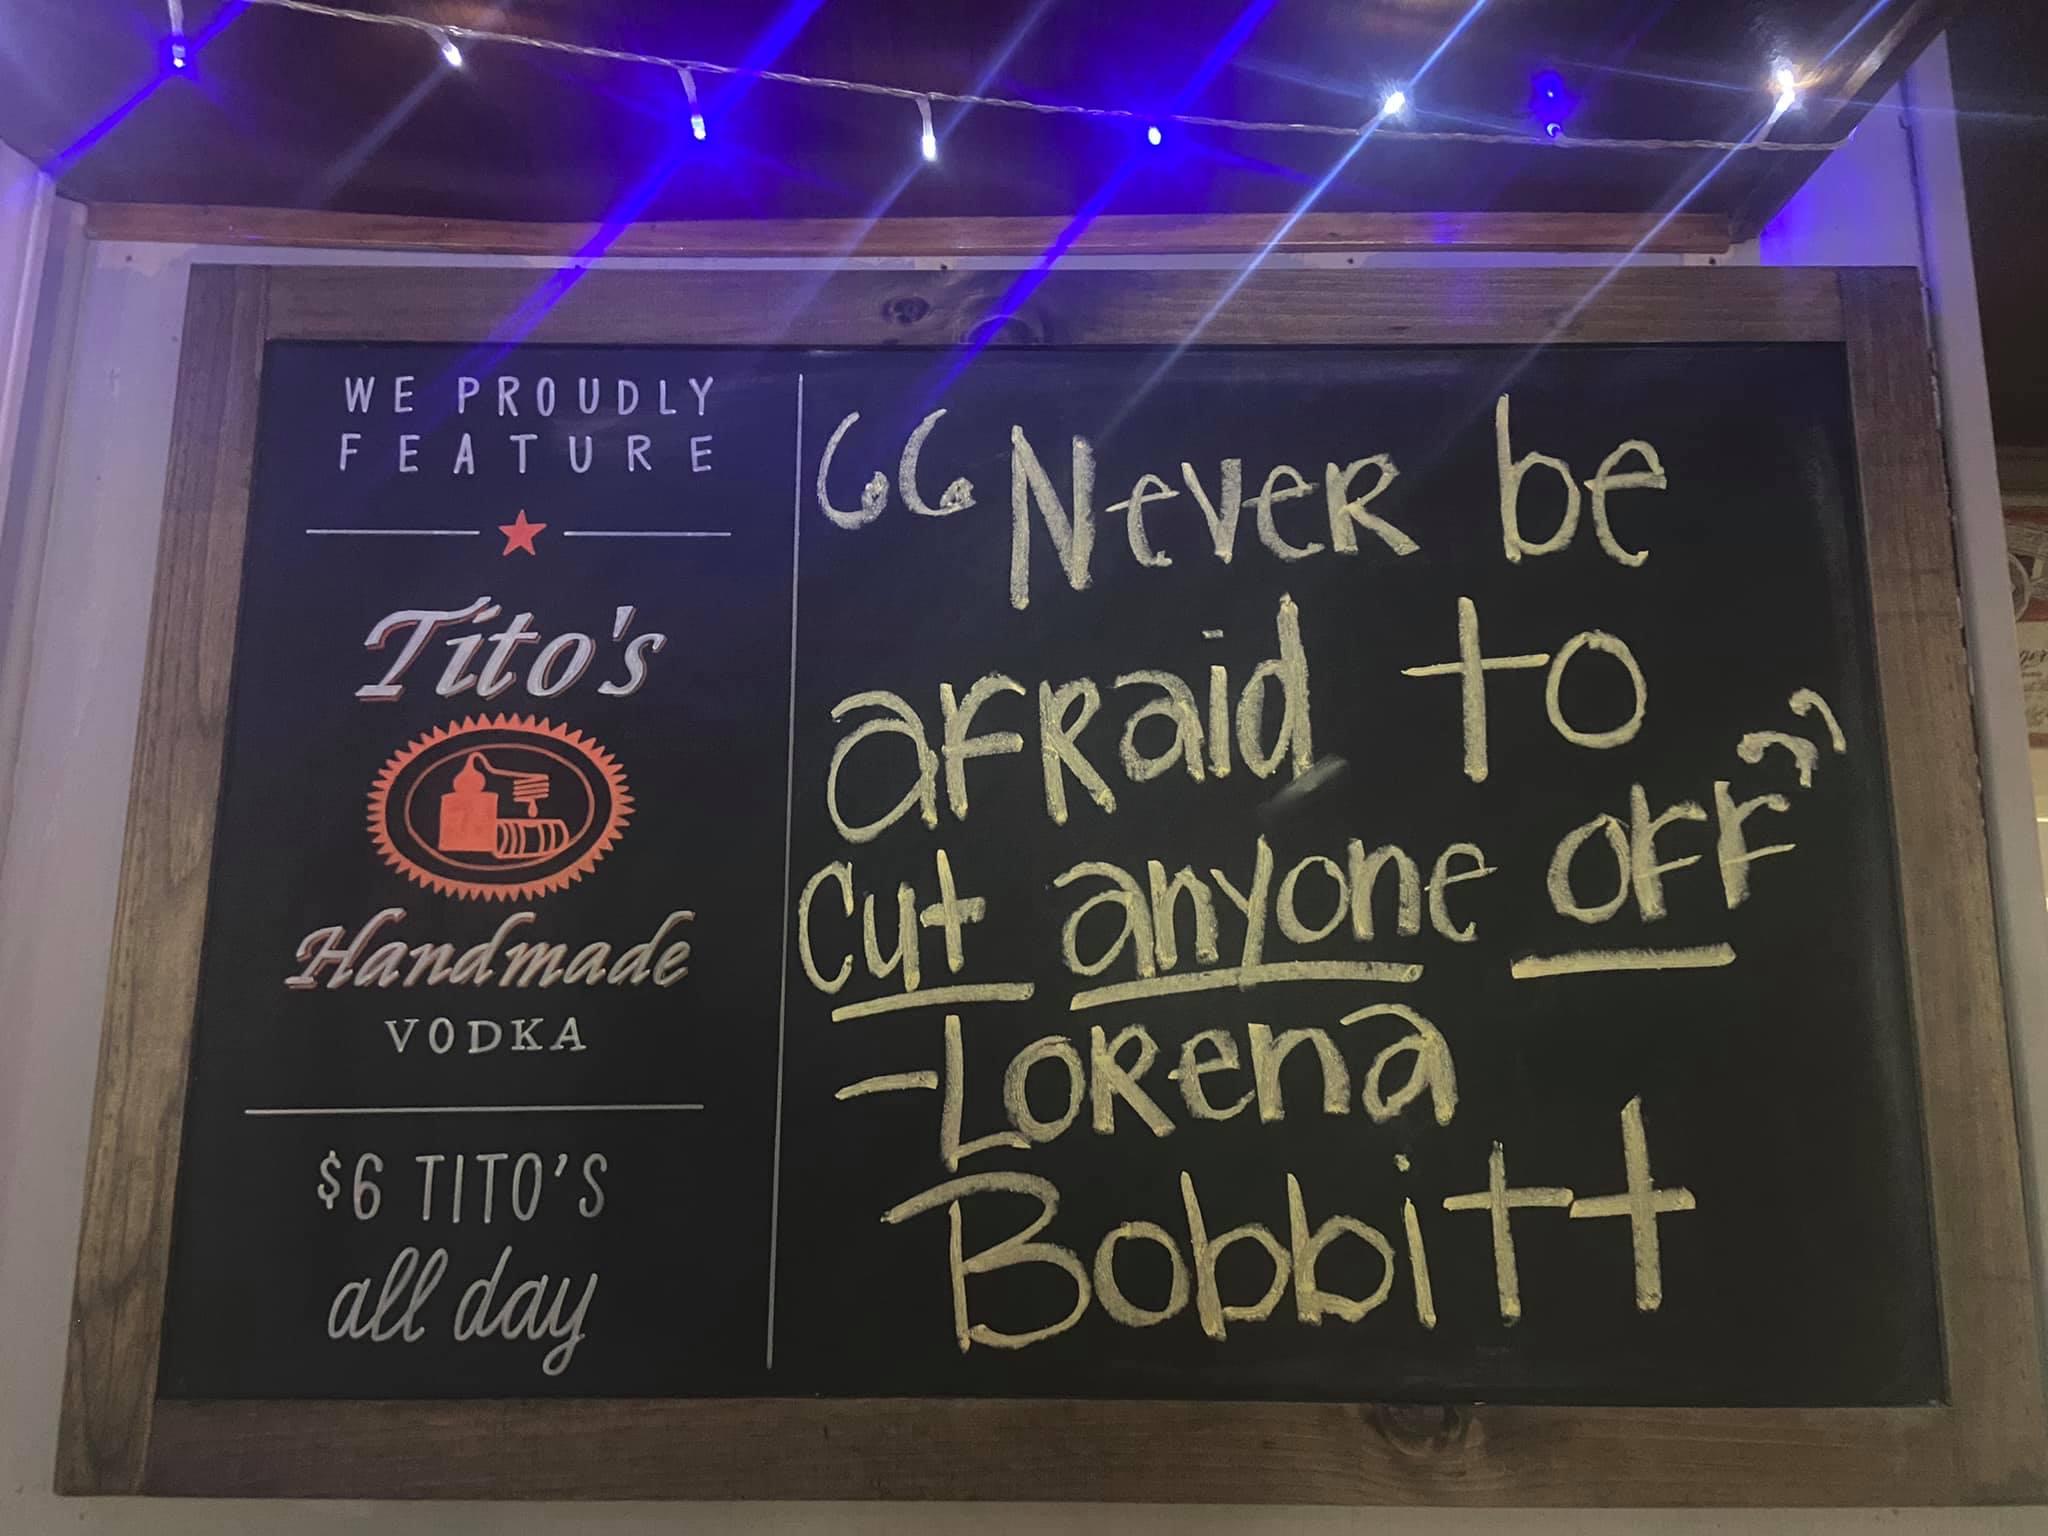 WE PROUDLY
FEATURE
Tito's
Handmade
VODKA
$6 TITO'S
all day
“Never be
afraid to
Cut anyone off”
-Lorena
Bobbitt